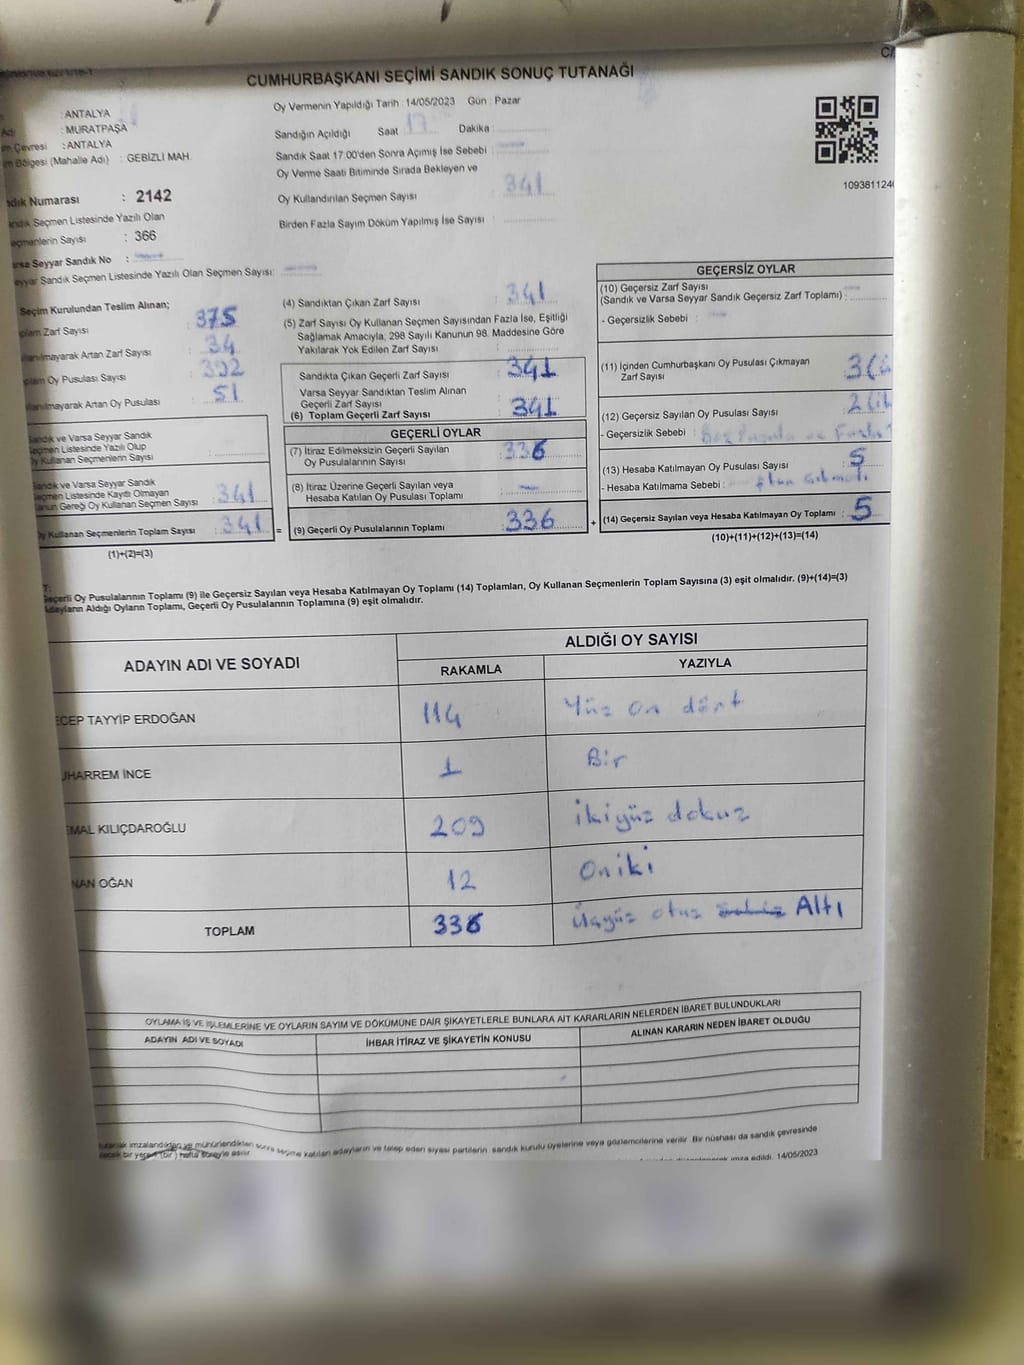 CUMHURBAŞKANI SEÇİMİ SANDIK SONUÇ TUTANAĞI
: ANTALYA
: MURATPAŞA
Çevresi : ANTALYA
Bölgesi (Mahalle Adı) : GEBİZLİ MAH.
Numarası : 2142
Seçmen Listesinde Yazılı Olan
Sayısı : 366
Seyyar Sandık No :
Sandık Seçmen Listesinde Yazılı Olan Seçmen Sayısı:
Oy Vermenin Yapıldığı Tarih : 14/05/2023 Gün : Pazar
Sandığın Açıldığı Saat 17 Dakika :
Sandık Saat 17:00'den Sonra Açımış İse Sebebi :
Oy Verme Saati Bitiminde Sırada Bekleyen ve
Oy Kullandırılan Seçmen Sayısı : 341
Birden Fazla Sayım Döküm Yapılmış İse Sayısı :
Seçim Kurulundan Teslim Alınan;
Zarf Sayısı : 375
Artan Zarf Sayısı : 34
Oy Pusulası Sayısı : 392
Artan Oy Pusulası : 51
Sandık ve Varsa Seyyar Sandık
Seçmen Listesinde Yazılı Olup
Oy Kullanan Seçmenlerin Sayısı :
Sandık ve Varsa Seyyar Sandık
Seçmen Listesinde Kayıtlı Olmayan
Kanun Gereği Oy Kullanan Seçmen Sayısı : 341
Oy Kullanan Seçmenlerin Toplam Sayısı : 341 =
(1)+(2)=(3)
(4) Sandıktan Çıkan Zarf Sayısı : 341
(5) Zarf Sayısı Oy Kullanan Seçmen Sayısından Fazla İse, Eşitliği
Sağlamak Amacıyla, 298 Sayılı Kanunun 98. Maddesine Göre
Yakılarak Yok Edilen Zarf Sayısı :
Sandıkta Çıkan Geçerli Zarf Sayısı : 341
Varsa Seyyar Sandıktan Teslim Alınan
Geçerli Zarf Sayısı :
(6) Toplam Geçerli Zarf Sayısı : 341
GEÇERLİ OYLAR
(7) İtiraz Edilmeksizin Geçerli Sayılan
Oy Pusulalarının Sayısı : 336
(8) İtiraz Üzerine Geçerli Sayılan veya
Hesaba Katılan Oy Pusulası Toplamı :
(9) Geçerli Oy Pusulalarının Toplamı : 336 +
GEÇERSİZ OYLAR
(10) Geçersiz Zarf Sayısı
(Sandık ve Varsa Seyyar Sandık Geçersiz Zarf Toplamı) :
- Geçersizlik Sebebi :
(11) İçinden Cumhurbaşkanı Oy Pusulası Çıkmayan
Zarf Sayısı : 3
(12) Geçersiz Sayılan Oy Pusulası Sayısı : 2
- Geçersizlik Sebebi :
(13) Hesaba Katılmayan Oy Pusulası Sayısı : 5
- Hesaba Katılmama Sebebi :
(14) Geçersiz Sayılan veya Hesaba Katılmayan Oy Toplamı : 5
(10)+(11)+(12)+(13)=(14)
Geçerli Oy Pusulalarının Toplamı (9) ile Geçersiz Sayılan veya Hesaba Katılmayan Oy Toplamı (14) Toplamları, Oy Kullanan Seçmenlerin Toplam Sayısına (3) eşit olmalıdır. (9)+(14)=(3)
Adayların Aldığı Oyların Toplamı, Geçerli Oy Pusulalarının Toplamına (9) eşit olmalıdır.
ADAYIN ADI VE SOYADI
ALDIĞI OY SAYISI
RAKAMLA YAZIYLA
ECEP TAYYİP ERDOĞAN 114 Yüz on dört
UHARREM İNCE 1 Bir
EMAL KILIÇDAROĞLU 209 ikiyüz dokuz
NAN OĞAN 12 Oniki
TOPLAM 336 üçyüz otuz Altı
OYLAMA İŞ VE İŞLEMLERİNE VE OYLARIN SAYIM VE DÖKÜMÜNE DAİR ŞİKAYETLERLE BUNLARA AİT KARARLARIN NELERDEN İBARET BULUNDUKLARI
ADAYIN ADI VE SOYADI İHBAR İTİRAZ VE ŞİKAYETİN KONUSU ALINAN KARARIN NEDEN İBARET OLDUĞU
tutanak imzalandıktan ve mühürlendikten sonra seçime katılan adayların ve talep eden siyasi partilerin sandık kurulu üyelerine veya gözlemcilerine verilir. Bir nüshası da sandık çevresinde
bir yere (bir) hafta süreyle asılır.
imza edildi. 14/05/2023